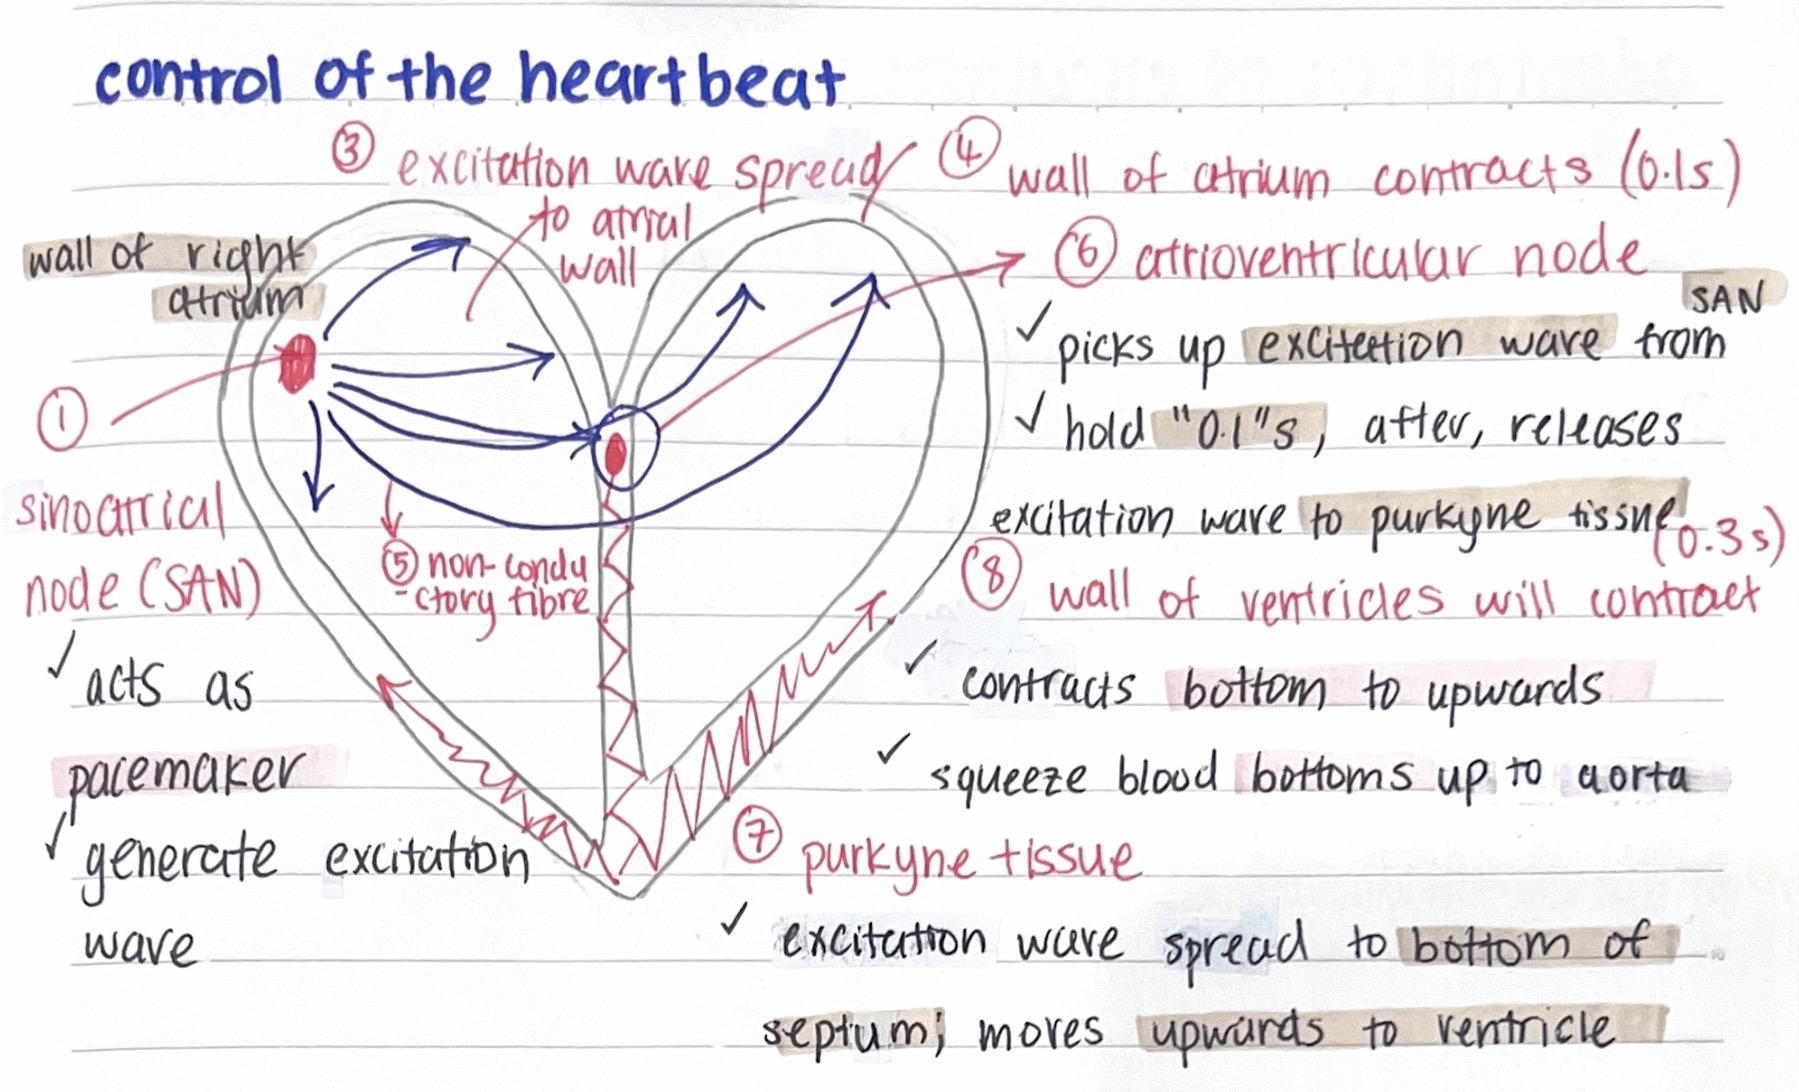 control of the heartbeat
③ excitation wave spread
to atrial
wall
④ wall of atrium contracts (0.1s)
wall of right
atrium
①
sinoatrial
node (SAN)
✓ acts as
pacemaker
✓ generate excitation
wave
⑤ non-condu
-ctory fibre
⑥ atrioventricular node
SAN
✓ picks up excitation wave from
✓ hold "0.1"s, after, releases
excitation wave to purkyne tissue
(0.3s)
⑧ wall of ventricles will contract
✓ contracts bottom to upwards
✓ squeeze blood bottoms up to aorta
⑦ purkyne tissue
✓ excitation wave spread to bottom of
septum; moves upwards to ventricle